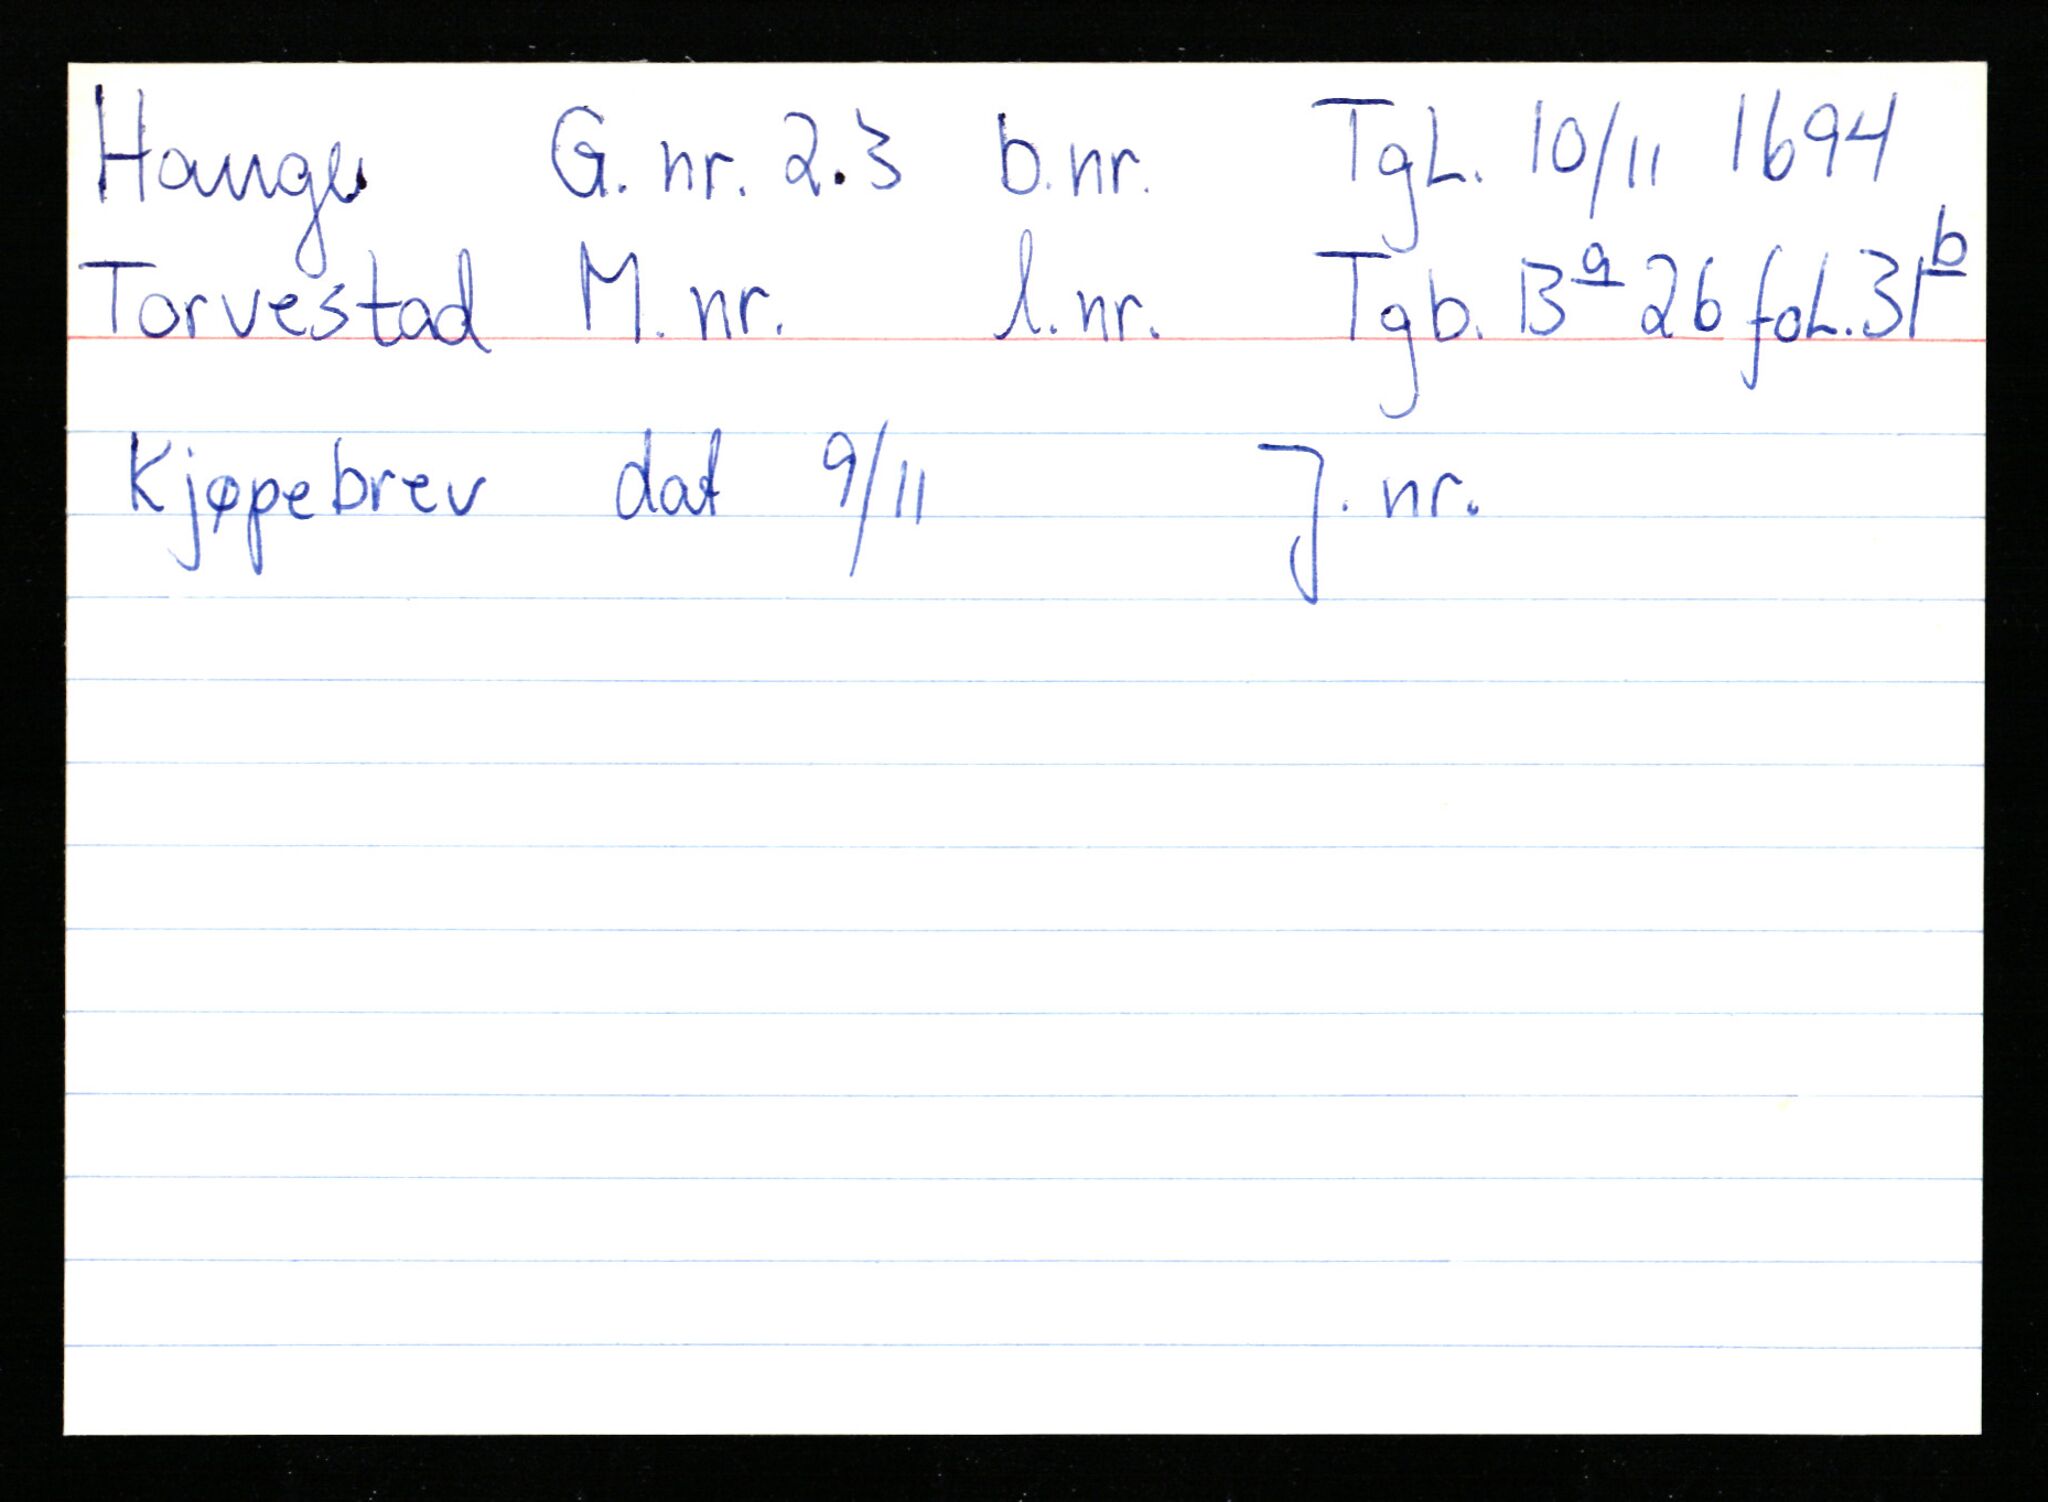 Hauge G. nr. 2.3 b.nr. TgL. 10/11 1694
Torvestad M. nr. l. nr. Tgb. Bª 26 foL. 31ᵇ
Kjøpebrev dat 9/11 J. nr.